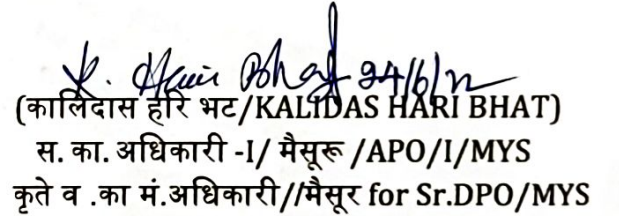 K. Hari Bhat 24/6/22
(कालिदास हरि भट/KALIDAS HARI BHAT)
स. का. अधिकारी -I/ मैसूरू /APO/I/MYS
कृते व .का मं.अधिकारी//मैसूर for Sr.DPO/MYS